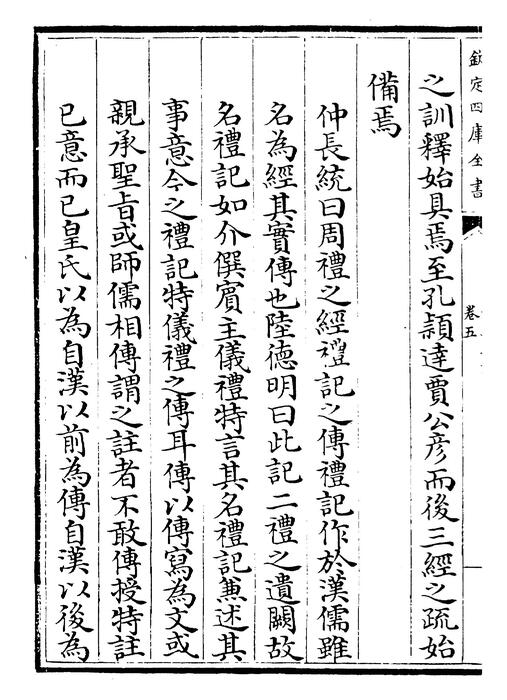 欽定四庫全書
卷五
之訓釋始具焉至孔穎達賈公彦而後三經之疏始
備焉
仲長統曰周禮之經禮記之傳禮記作於漢儒雖
名為經其實傳也陸徳明曰此記二禮之遺闕故
名禮記如介僎賔主儀禮特言其名禮記兼述其
事意今之禮記特儀禮之傳耳傳以傳寫為文或
親承聖旨或師儒相傳謂之註者不敢傳授特註
已意而已皇氏以為自漢以前為傳自漢以後為